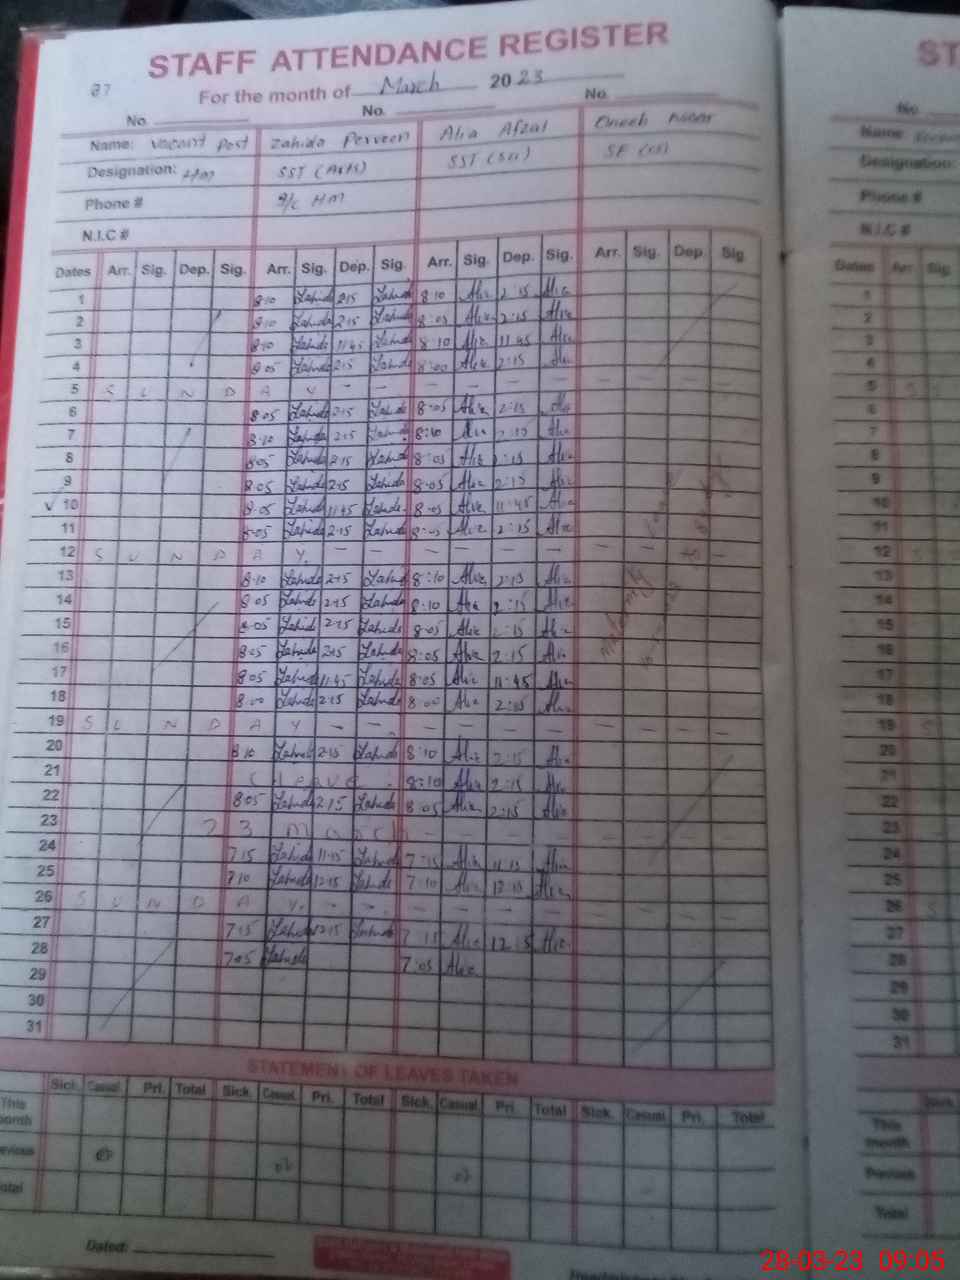 STAFF ATTENDANCE REGISTER
For the month of March 2023
No. No. No.
Name: vacant post Zahida Perveen Alia Afzal
Designation: H/M SST (Arts) SST (Sci)
Phone # I/C HM
N.I.C #
Dates Arr. Sig. Dep. Sig. Arr. Sig. Dep. Sig. Arr. Sig. Dep. Sig. Arr. Sig. Dep. Sig
1 8·10 Zahida 2·15 Zahida 8:10 Alia 2:15 Alia
2 8·10 Zahida 2·15 Zahida 8:05 Alia 2:15 Alia
3 8·10 Zahida 11·45 Zahida 8:10 Alia 11:45 Alia
4 8·05 Zahida 2·15 Zahida 8:00 Alia 2:15 Alia
5 S U N D A Y
6 8·05 Zahida 2·15 Zahida 8:05 Alia 2:15 Alia
7 8·10 Zahida 2·15 Zahida 8:10 Alia 2:15 Alia
8 8·05 Zahida 2·15 Zahida 8:05 Alia 2:15 Alia
9 8·05 Zahida 2·15 Zahida 8:05 Alia 2:15 Alia
10 8·05 Zahida 11·45 Zahida 8:05 Alia 11:45 Alia
11 8·05 Zahida 2·15 Zahida Alia 2:15 Alia
12 S U N D A Y
13 8·10 Zahida 2·15 Zahida 8:10 Alia 2:15 Alia
14 8·05 Zahida 2·15 Zahida 8:10 Alia 2:15 Alia
15 8·05 Zahida 2·15 Zahida 8:05 Alia 2:15 Alia
16 8·05 Zahida 2·15 Zahida 8:05 Alia 2:15 Alia
17 8·05 Zahida 11·45 Zahida 8:05 Alia 11:45 Alia
18 8·00 Zahida 2·15 Zahida 8:00 Alia 2:15 Alia
19 S U N D A Y
20 8·10 Zahida 2·15 Zahida 8:10 Alia 2:15 Alia
21 C leave 8:10 Alia 2:15 Alia
22 8·05 Zahida 2·15 Zahida 8:05 Alia 2:15 Alia
23 23 March
24 7·15 Zahida 11·15 Zahida 7:15 Alia 11:15 Alia
25 7·10 Zahida 12·15 Zahida 7:10 Alia 12:15 Alia
26 S U N D A Y
27 7·15 Zahida 12·15 Zahida 7:15 Alia 12:15 Alia
28 7·05 Zahida 7:05 Alia
29
30
31
STATEMENT OF LEAVES TAKEN
Sick. Casual. Pri. Total Sick. Casual. Pri. Total Sick. Casual. Pri. Total Sick. Casual. Pri. Total
This month
Previous
Total
Dated:
ST
No
Name
Designation:
Phone #
N.I.C #
Dates Arr. Sig
1
2
3
4
5 S
6
7
8
9
10
11
12 S
13
14
15
16
17
18
19 S
20
21
22
23
24
25
26 S
27
28
29
30
31
Sick.
This month
Previous
Total
28-03-23 09:05